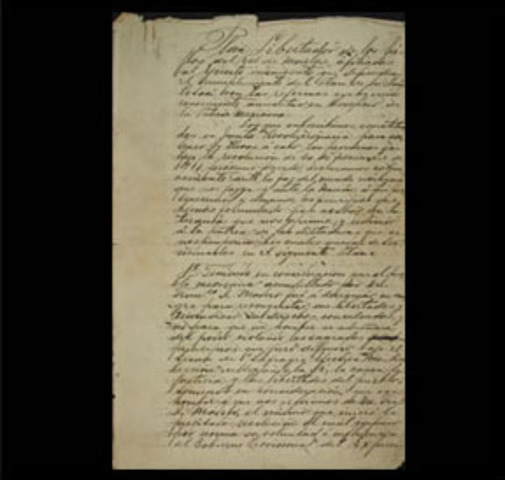 Plan Libertador de los hi
jos del Estado de Morelos, afiliados
al Ejército insurgente que defiende
el cumplimiento del Plan de San Luis
con las reformas que
conveniente aumentar en beneficio de
la Patria Mexicana
Los que suscribimos constitui
dos en Junta Revolucionaria para sos
tener y llevar a cabo las promesas que
la revolución de 20 de
1910 próximo pasado, declaramos solem
nemente ante la faz del mundo civilizado
que nos juzga y ante la Nación á que
pertenecemos y amamos, los principios que
hemos formulado para acabar con la
tiranía que nos oprime y redimir
á la patria de las dictaduras que se
nos imponen las cuales quedan de
en el siguiente Plan
1º Teniendo en consideración que el pue
blo mexicano acaudillado por
I. Madero fué á derramar su san
gre para reconquistar sus libertades y
reivindicar sus derechos conculcados
y no para que un hombre se adueñara
del poder violando los sagrados
principios que juró defender bajo el
Lema de Sufragio Efectivo No Re
elección ultrajando la fé, la causa, la
justicia y las libertades del pueblo,
teniendo en consideración que ese
hombre a que nos referimos es
I. Madero, el mismo que inició la
precitada revolución el cual impuso
por norma su voluntad é influencia
al Gobierno Provisional del Ex presi